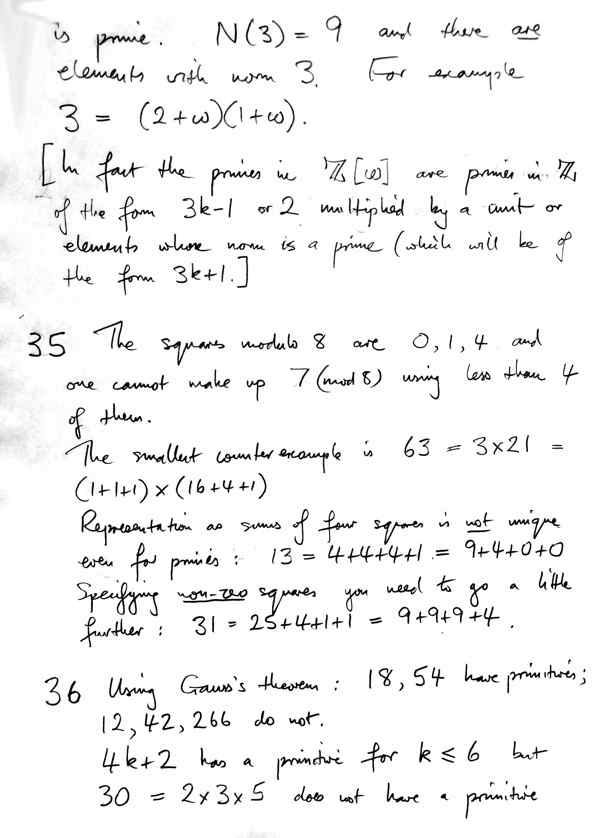 is prime. N(3) = 9 and there are
elements with norm 3. For example
3 = (2+ω)(1+ω).
[In fact the primes in ℤ[ω] are primes in ℤ
of the form 3k-1 or 2 multiplied by a unit or
elements whose norm is a prime (which will be of
the form 3k+1.]
35 The squares modulo 8 are 0, 1, 4 and
one cannot make up 7 (mod 8) using less than 4
of them.
The smallest counterexample is 63 = 3×21 =
(1+1+1) × (16+4+1)
Representation as sums of four squares is not unique
even for primes : 13 = 4+4+4+1 = 9+4+0+0
Specifying non-zero squares you need to go a little
further : 31 = 25+4+1+1 = 9+9+9+4.
36 Using Gauss's theorem : 18, 54 have primitives;
12, 42, 266 do not.
4k+2 has a primitive for k ≤ 6 but
30 = 2×3×5 does not have a primitive